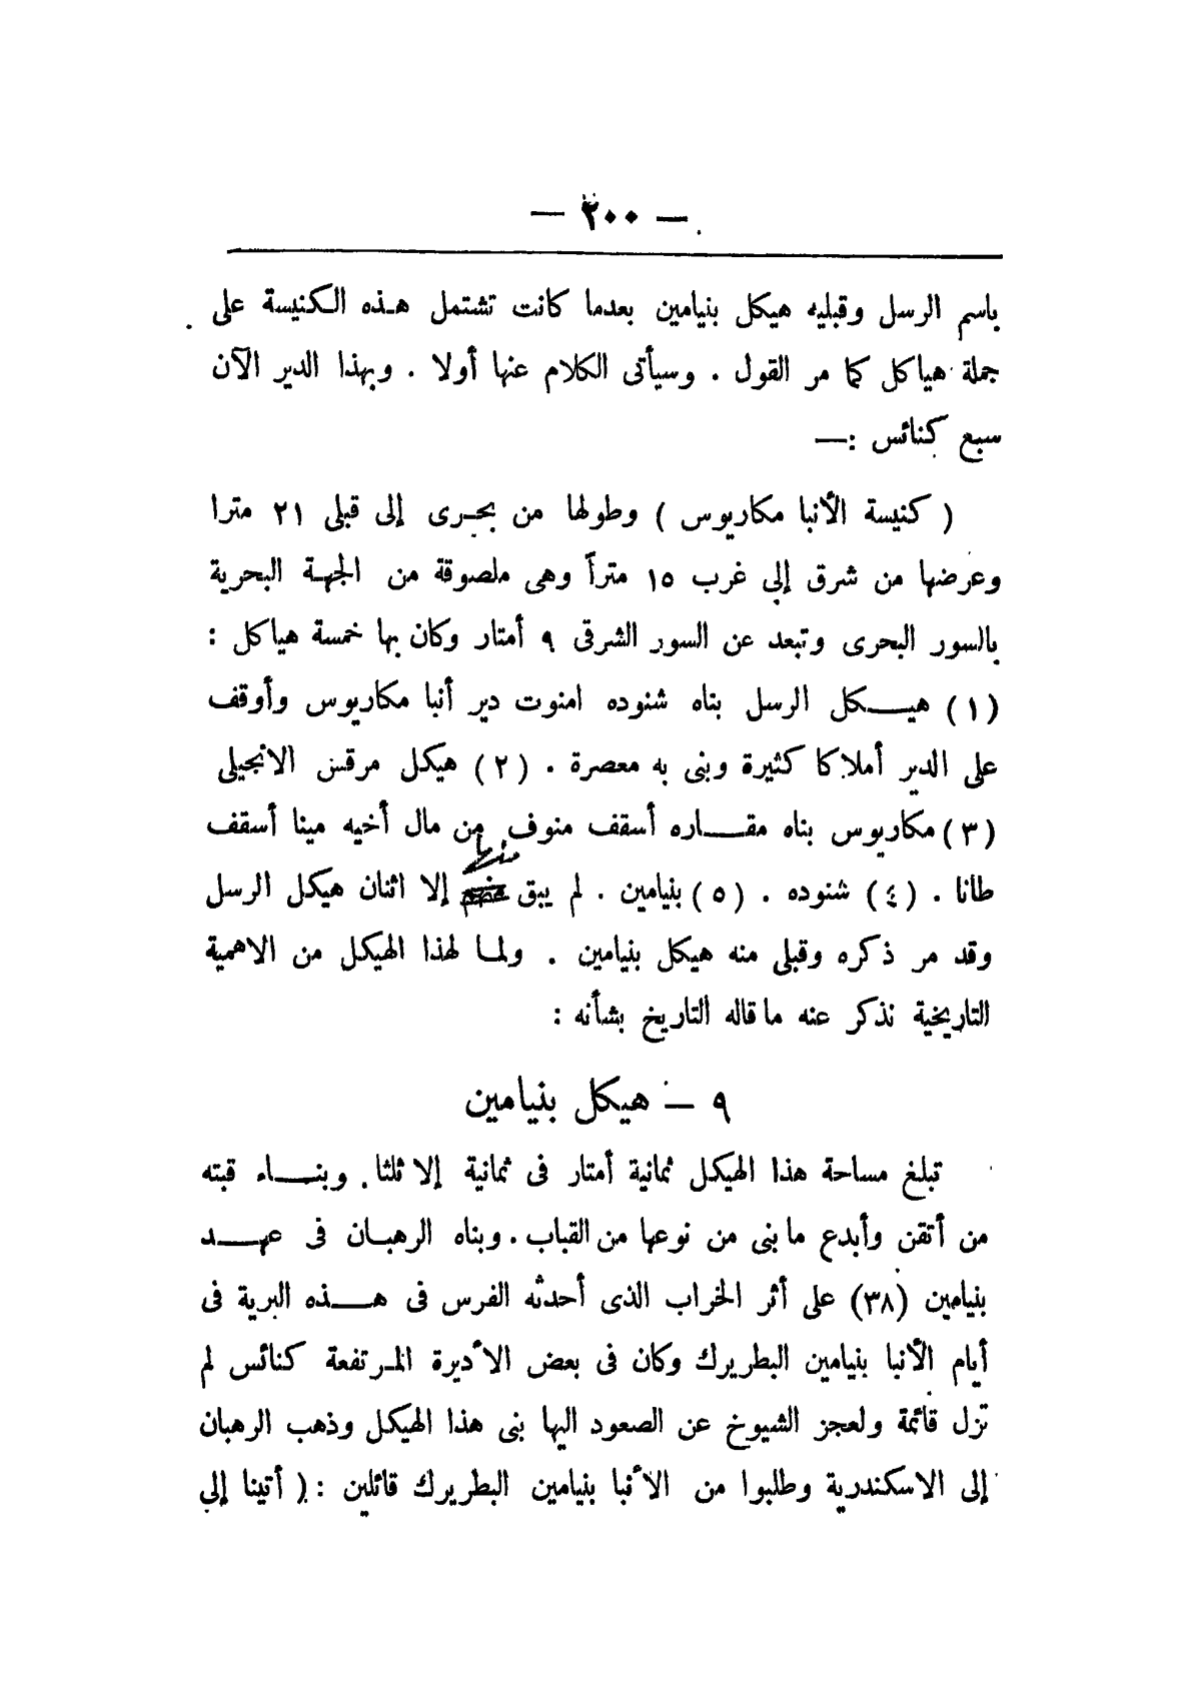 — ٢٠٠ —
باسم الرسل وقبليه هيكل بنيامين بعدما كانت تشتمل هذه الكنيسة على
جملة هياكل كما مر القول . وسيأتى الكلام عنها أولا . وبهذا الدير الآن
سبع كنائس :—
( كنيسة الأنبا مكاريوس ) وطولها من بحرى إلى قبلى ٢١ مترا
وعرضها من شرق إلى غرب ١٥ متراً وهى ملصوقة من الجهة البحرية
بالسور البحرى وتبعد عن السور الشرقى ٩ أمتار وكان بها خمسة هياكل :
(١) هيكل الرسل بناه شنوده امنوت دير أنبا مكاريوس وأوقف
على الدير أملاكا كثيرة وبنى به معصرة . (٢) هيكل مرقس الانجيلى
(٣) مكاريوس بناه مقاره أسقف منوف من مال أخيه مينا أسقف
طانا . (٤) شنوده . (٥) بنيامين . لم يبق منها إلا اثنان هيكل الرسل
وقد مر ذكره وقبلى منه هيكل بنيامين . ولما لهذا الهيكل من الاهمية
التاريخية نذكر عنه ماقاله التاريخ بشأنه :
٩ — هيكل بنيامين
تبلغ مساحة هذا الهيكل ثمانية أمتار فى ثمانية إلا ثلثا . وبناء قبته
من أتقن وأبدع ما بنى من نوعها من القباب . وبناه الرهبان فى عهد
بنيامين (٣٨) على أثر الخراب الذى أحدثه الفرس فى هذه البرية فى
أيام الأنبا بنيامين البطريرك وكان فى بعض الأديرة المرتفعة كنائس لم
تزل قائمة ولعجز الشيوخ عن الصعود اليها بنى هذا الهيكل وذهب الرهبان
إلى الاسكندرية وطلبوا من الأنبا بنيامين البطريرك قائلين : ( أتينا إلى